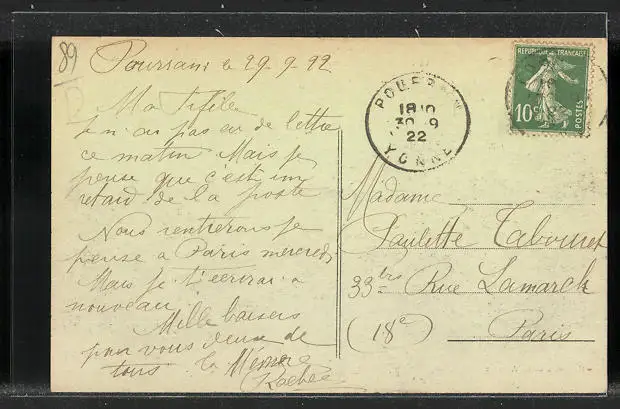 89
Pourrain le 29-9-22
Ma Fifille
Je n'ai pas eu de lettre
ce matin Mais je
pense que c'est un
retard de la poste
Nous rentrerons je
pense a Paris mercredi
Mais je t'ecrirai a
nouveau
Mille baisers
pour vous deux de
tous la Mémère
REPUBLIQUE FRANÇAISE
10c
POSTES
18
30-9
22
YONNE
Madame
Paulette Tabouret
33 bis Rue Lamarck
(18e) Paris